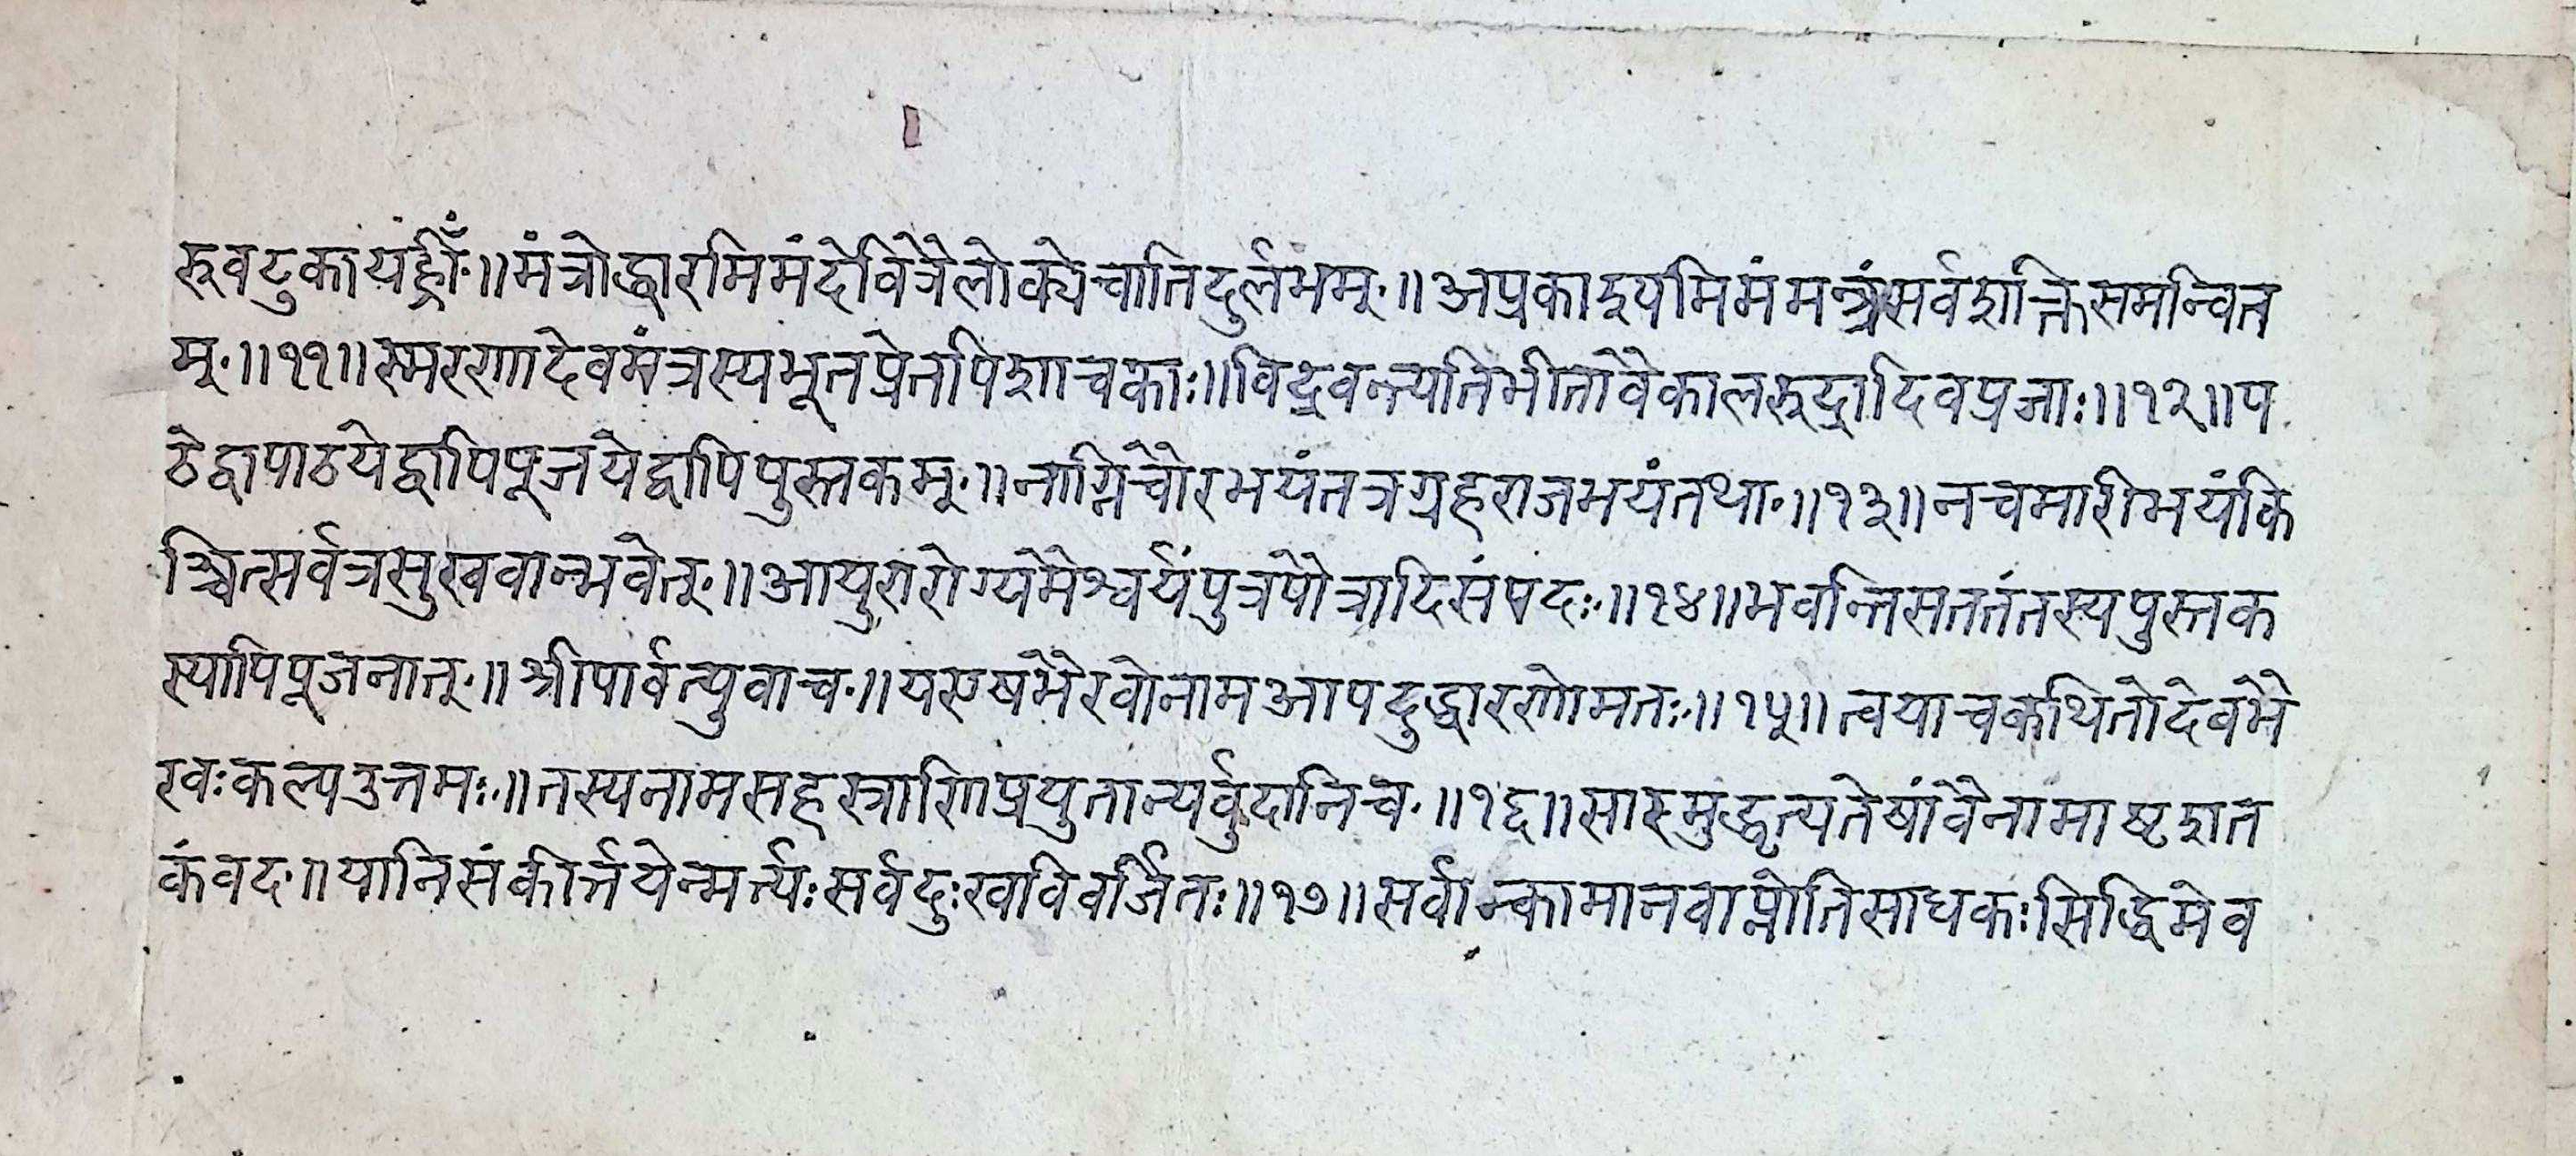 रुवटुकायह्रीँ॥मंत्रोद्धारमिमंदेवित्रैलोक्येचातिदुर्लभम्॥अप्रकाश्यमिमंमन्त्रंसर्वशक्तिसमन्वित
म्॥११॥स्मरणादेवमंत्रस्यभूतप्रेतपिशाचकाः॥विद्रवन्त्यतिभीतावैकालरुद्रादिवप्रजाः॥१२॥प
ठेद्वापाठयेद्वापिपूजयेद्वापिपुस्तकम्॥नाग्निचौरभयंतत्रग्रहराजभयंतथा॥१३॥नचमारीभयंकि
ञ्चित्सर्वत्रसुखवान्भवेत्॥आयुरारोग्यमैश्वर्यंपुत्रपौत्रादिसंपदः॥१४॥भवन्तिसततंतस्यपुस्तक
स्यापिपूजनात्॥श्रीपार्वत्युवाच॥यएषभैरवोनामआपदुद्धारणोमतः॥१५॥त्वयाचकथितोदेवभै
रवःकल्पउत्तमः॥तस्यनामसहस्त्राणिप्रयुतान्यर्वुदानिच॥१६॥सारमुद्धृत्यतेषांवैनामाष्टशत
कंवद॥यानिसंकीर्त्तयेन्मर्त्यःसर्वदुःखविवर्जितः॥१७॥सर्वान्कामानवाप्नोतिसाधकःसिद्धिमेव